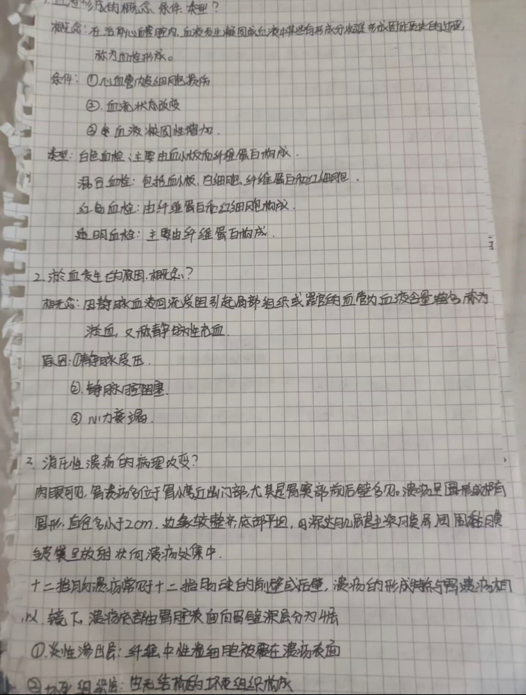 1.血栓形成的概念 条件 类型?
概念:在活体心血管腔内,血液发生凝固或血液中某些有形成分凝集形成固体质块的过程,
称为血栓形成。
条件:①心血管内皮细胞损伤
②血流状态改变
③血液凝固性增加.
类型:白色血栓:主要由血小板和纤维蛋白构成.
混合血栓:包括血小板,白细胞,纤维蛋白和红细胞.
红色血栓:由纤维蛋白和红细胞构成.
透明血栓:主要由纤维蛋白构成.
2.淤血发生的原因.概念?
概念:因静脉血液回流受阻引起局部组织或器官的血管内血液含量增多称为
淤血,又称静脉性充血.
原因:①静脉受压
②静脉腔阻塞.
③心力衰竭.
3.消化性溃疡的病理改变?
肉眼可见,胃溃疡多位于胃小弯近幽门部,尤其是胃窦部前后壁多见。溃疡呈圆形或椭
圆形,直径多小于2cm,边缘较整齐底部平坦,
皱襞呈放射状向溃疡处集中.
十二指肠溃疡常见于十二指肠球的前壁或后壁,溃疡的形成特点与胃溃疡相
似.镜下,溃疡底部由胃腔表面向胃壁深层分为4层
①炎性渗出层:纤维中性粒细胞被覆在溃疡表面
②坏死组织层:由无结构的坏死组织构成